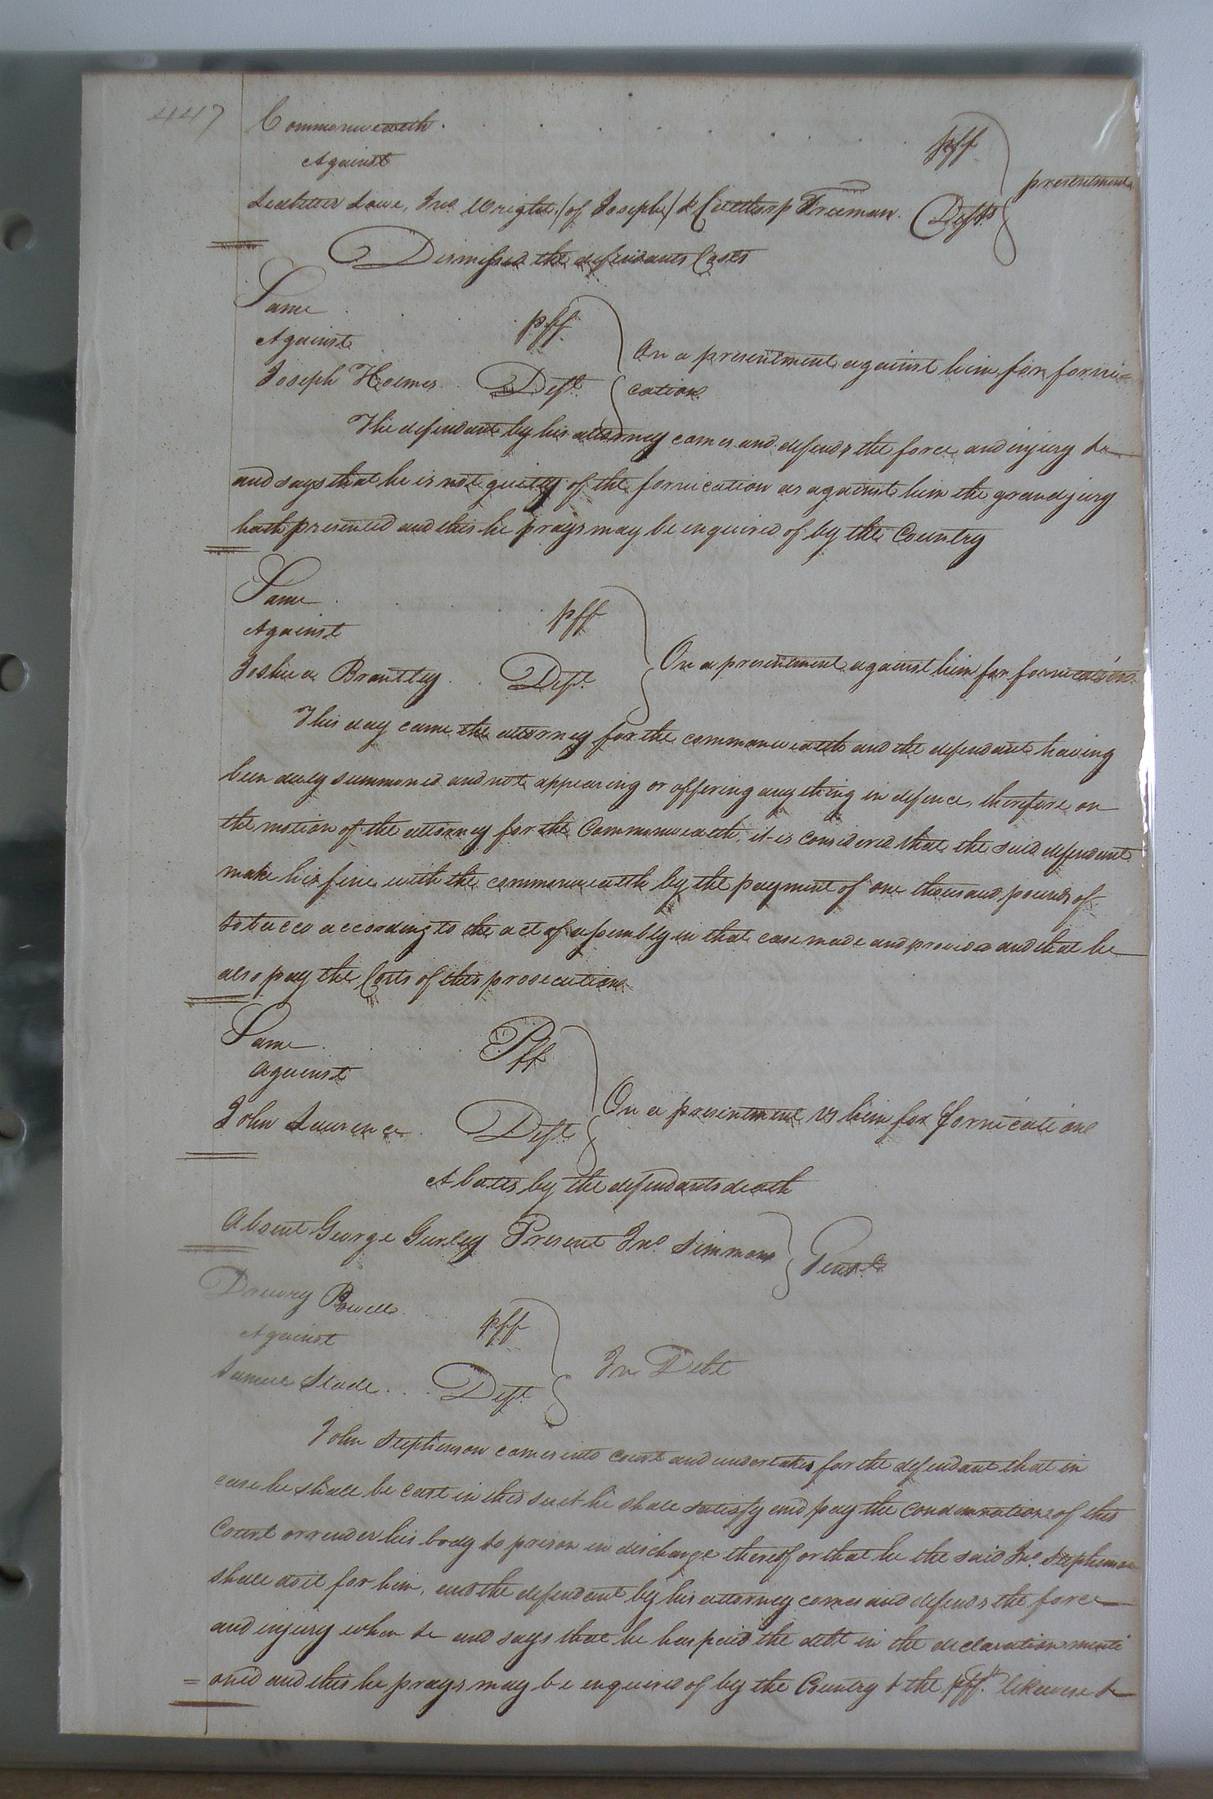 447
Commonwealth pff
Against presentment
Ledbetter Lowe, Jno. Wright (of Joseph) & Collthorp Freeman. Defts
Dismissed the defendants Costs
Same pff
Against
Joseph Holmes Deft. On a presentment against him for forni=
cation.
The defendant by his attorney comes and defends the force and injury &c
and says that he is not guilty of the fornication as against him the grandjury
hath presented and this he prays may be enquired of by the Country
Same pff
Against
Joshua Brantley Deft. On a presentment against him for fornication
This day came the attorney for the commonwealth and the defendant having
been duly summoned and not appearing or offering any thing in defence, therefore on
the motion of the attorney for the Commonwealth, it is considered that the said defendant
make his fine with the commonwealth by the payment of one thousand pounds of
tobacco according to the act of assembly in that case made and provided and that he
also pay the Costs of this prosecution
Same Pff
against
John Lawrence Deft On a presentment vs him for fornication
Abates by the defendants death
Absent George Gurley Present Jno. Simmons Gent.
Drewry Powell pff
Against In Debt
Samuel Slade Deft.
John Stephenson comes into court and undertakes for the defendant that in
case he shall be cast in this suit he shall satisfy and pay the condemnation of this
Court or render his body to prison in discharge thereof or that he the said Jno. Stephenson
shall do it for him, and the defendant by his attorney comes and defends the force
and injury when &c and says that he has paid the debt in the declaration menti
oned and this he prays may be enquired of by the Country & the pff. likewise &c